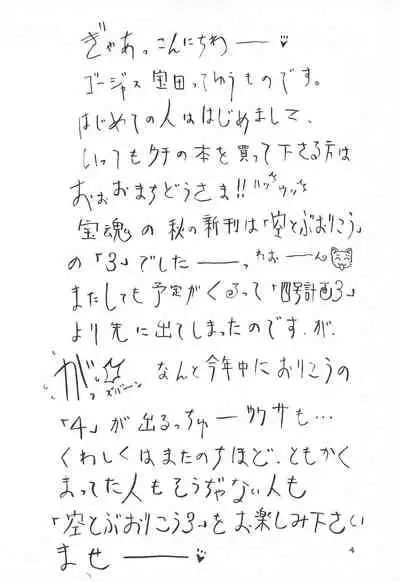 ぎゃあっこんにちわ――♡
ゴージャス宝田ってゆうものです。
はじめての人ははじめまして、
いつもウチの本を買って下さる方は
おぉおまちどうさま!!
宝魂の秋の新刊は「空とぶおりこう」
の「3」でした――っ わお――ん
またしても予定がくるって「四号計画3」
より先に出てしまったのです.が、
がっ ズバーン なんと今年中におりこうの
「4」が出るっちゅーウワサも…
くわしくはまたのちほど、ともかく
まってた人もそうぢゃない人も
「空とぶおりこう3」をお楽しみ下さい
ませ――♡
4